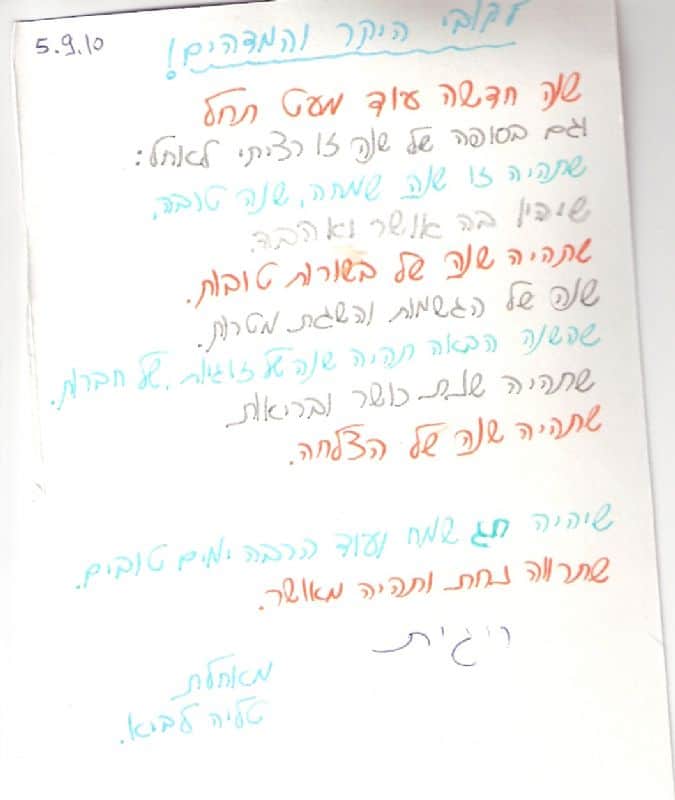 5.9.10
לקובי היקר והמדהים!
שנה חדשה עוד מעט תחל
וגם בסופה של שנה זו רציתי לאחל:
שתהיה זו שנה שמחה, שנה טובה,
שיהיו בה אושר ואהבה.
שתהיה שנה של בשורות טובות.
שנה של הגשמות והשגת מטרות.
שהשנה הבאה תהיה שנה של זוגיות, של חברות.
שתהיה שנת כושר ובריאות
שתהיה שנה של הצלחה.
שיהיה חג שמח ועוד הרבה ימים טובים.
שתרווה נחת ותהיה מאושר.
מאחלת
טליה לביא.